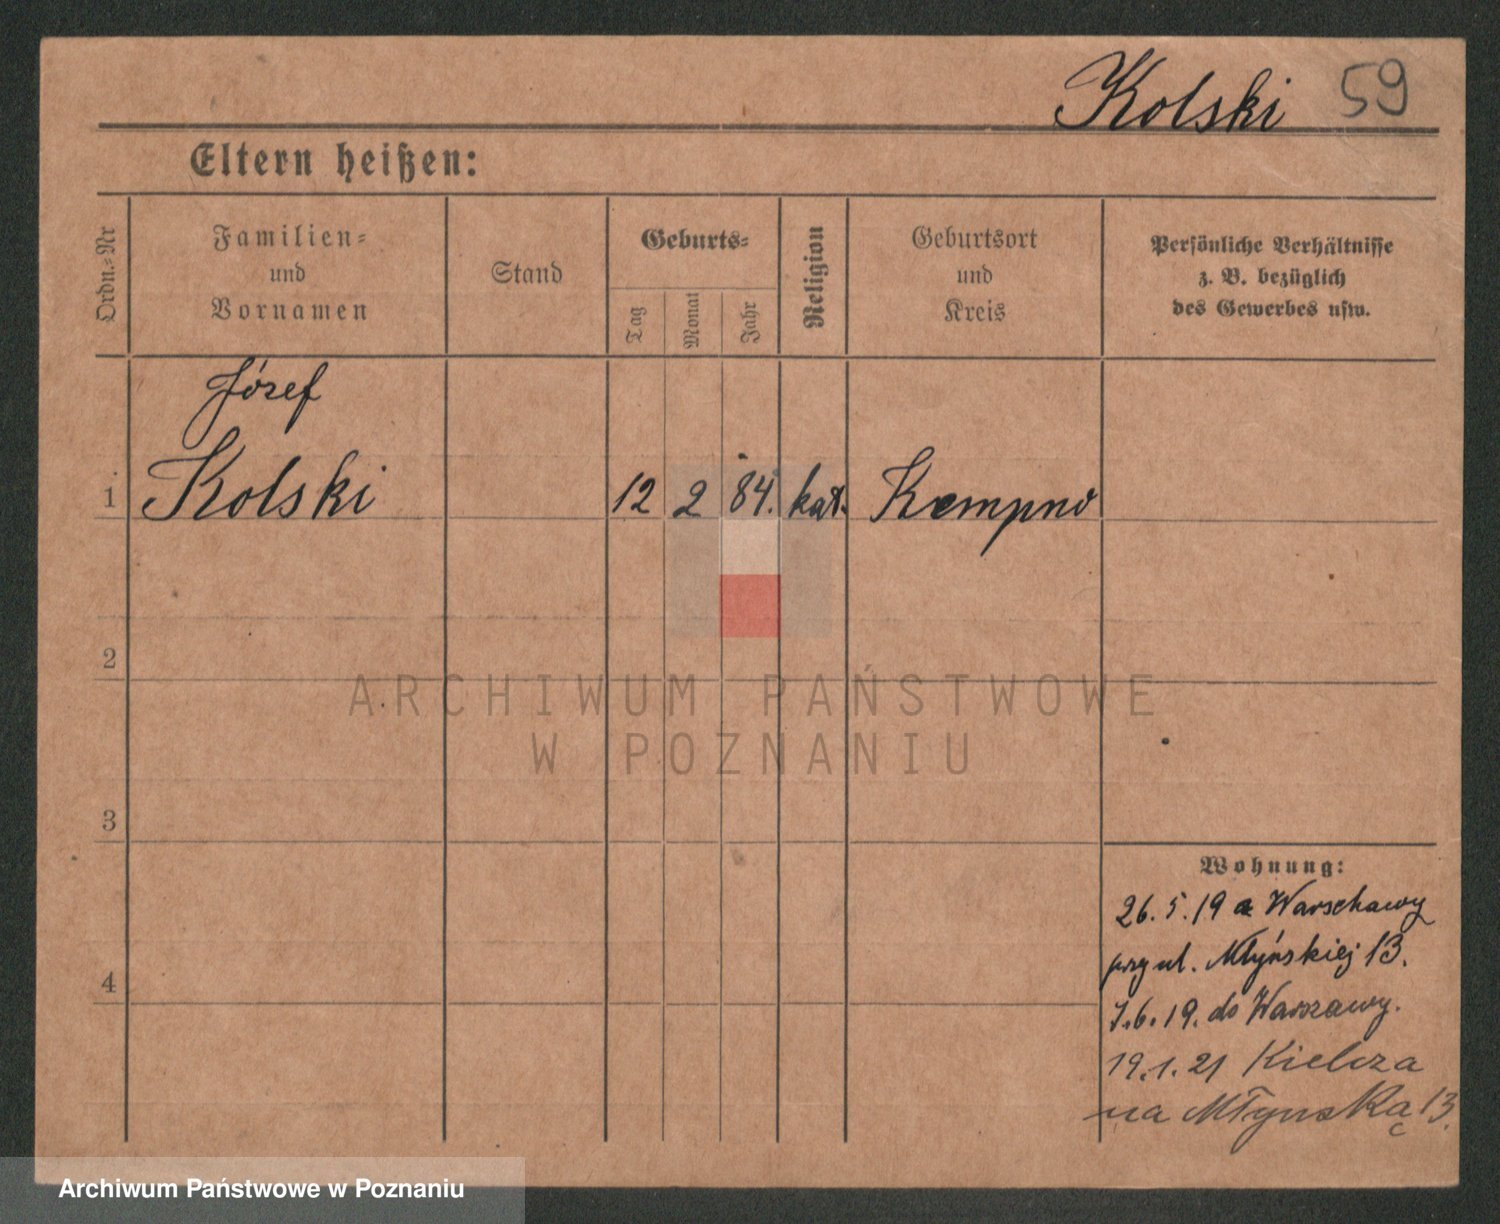 Kolski 59
Eltern heißen:
Ordn.-Nr
Familien-
und
Vornamen
Stand
Geburts-
Tag
Monat
Jahr
Religion
Geburtsort
und
Kreis
Persönliche Verhältnisse
z. B. bezüglich
des Gewerbes usw.
Józef
1 Kolski 12 2 84. kat. Kempno
2
ARCHIWUM PAŃSTWOWE
W POZNANIU
3
Wohnung:
26. 5. 19 a Warschawy
przy ul. Młyńskiej 13.
4
7. 6. 19. do Warszawy.
19. 1. 21 Kielcza
na Młynską 13.
Archiwum Państwowe w Poznaniu